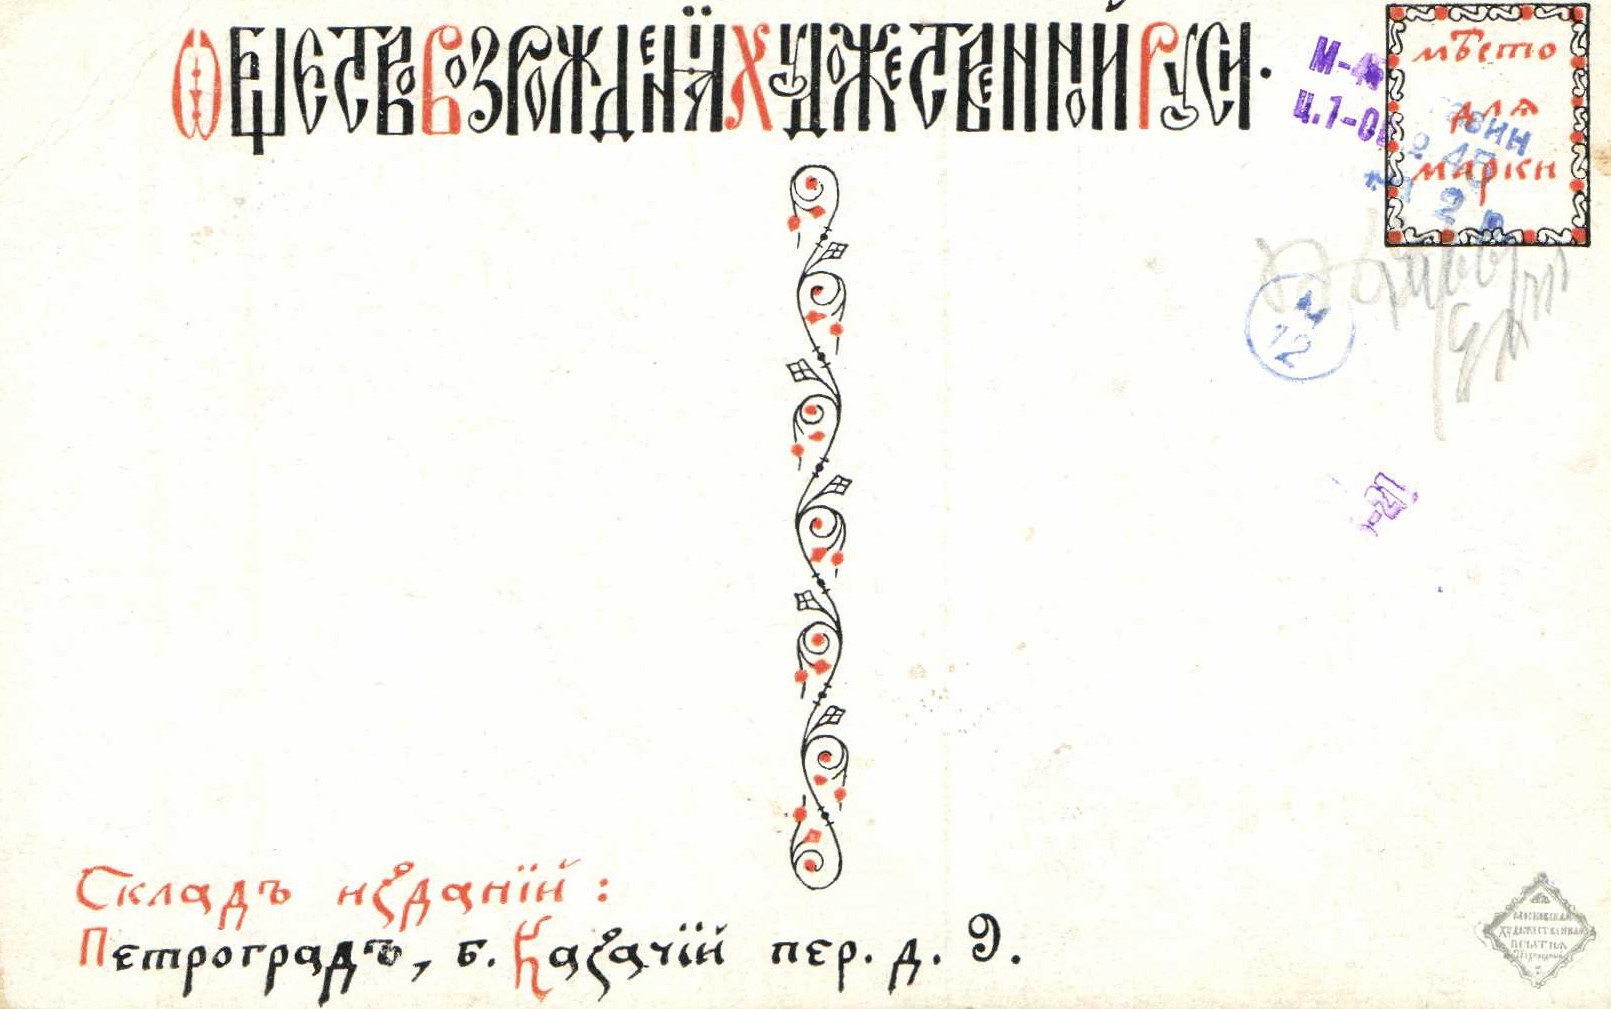 Ѡбщество Возрожденїѧ Художественной Руси.
М-4
Ц.1-0
мѣсто
для
марки
12
-21
Складъ изданїй:
Петроградъ, б. Казачїй пер. д. 9.
Московская
Художественная
Печатня